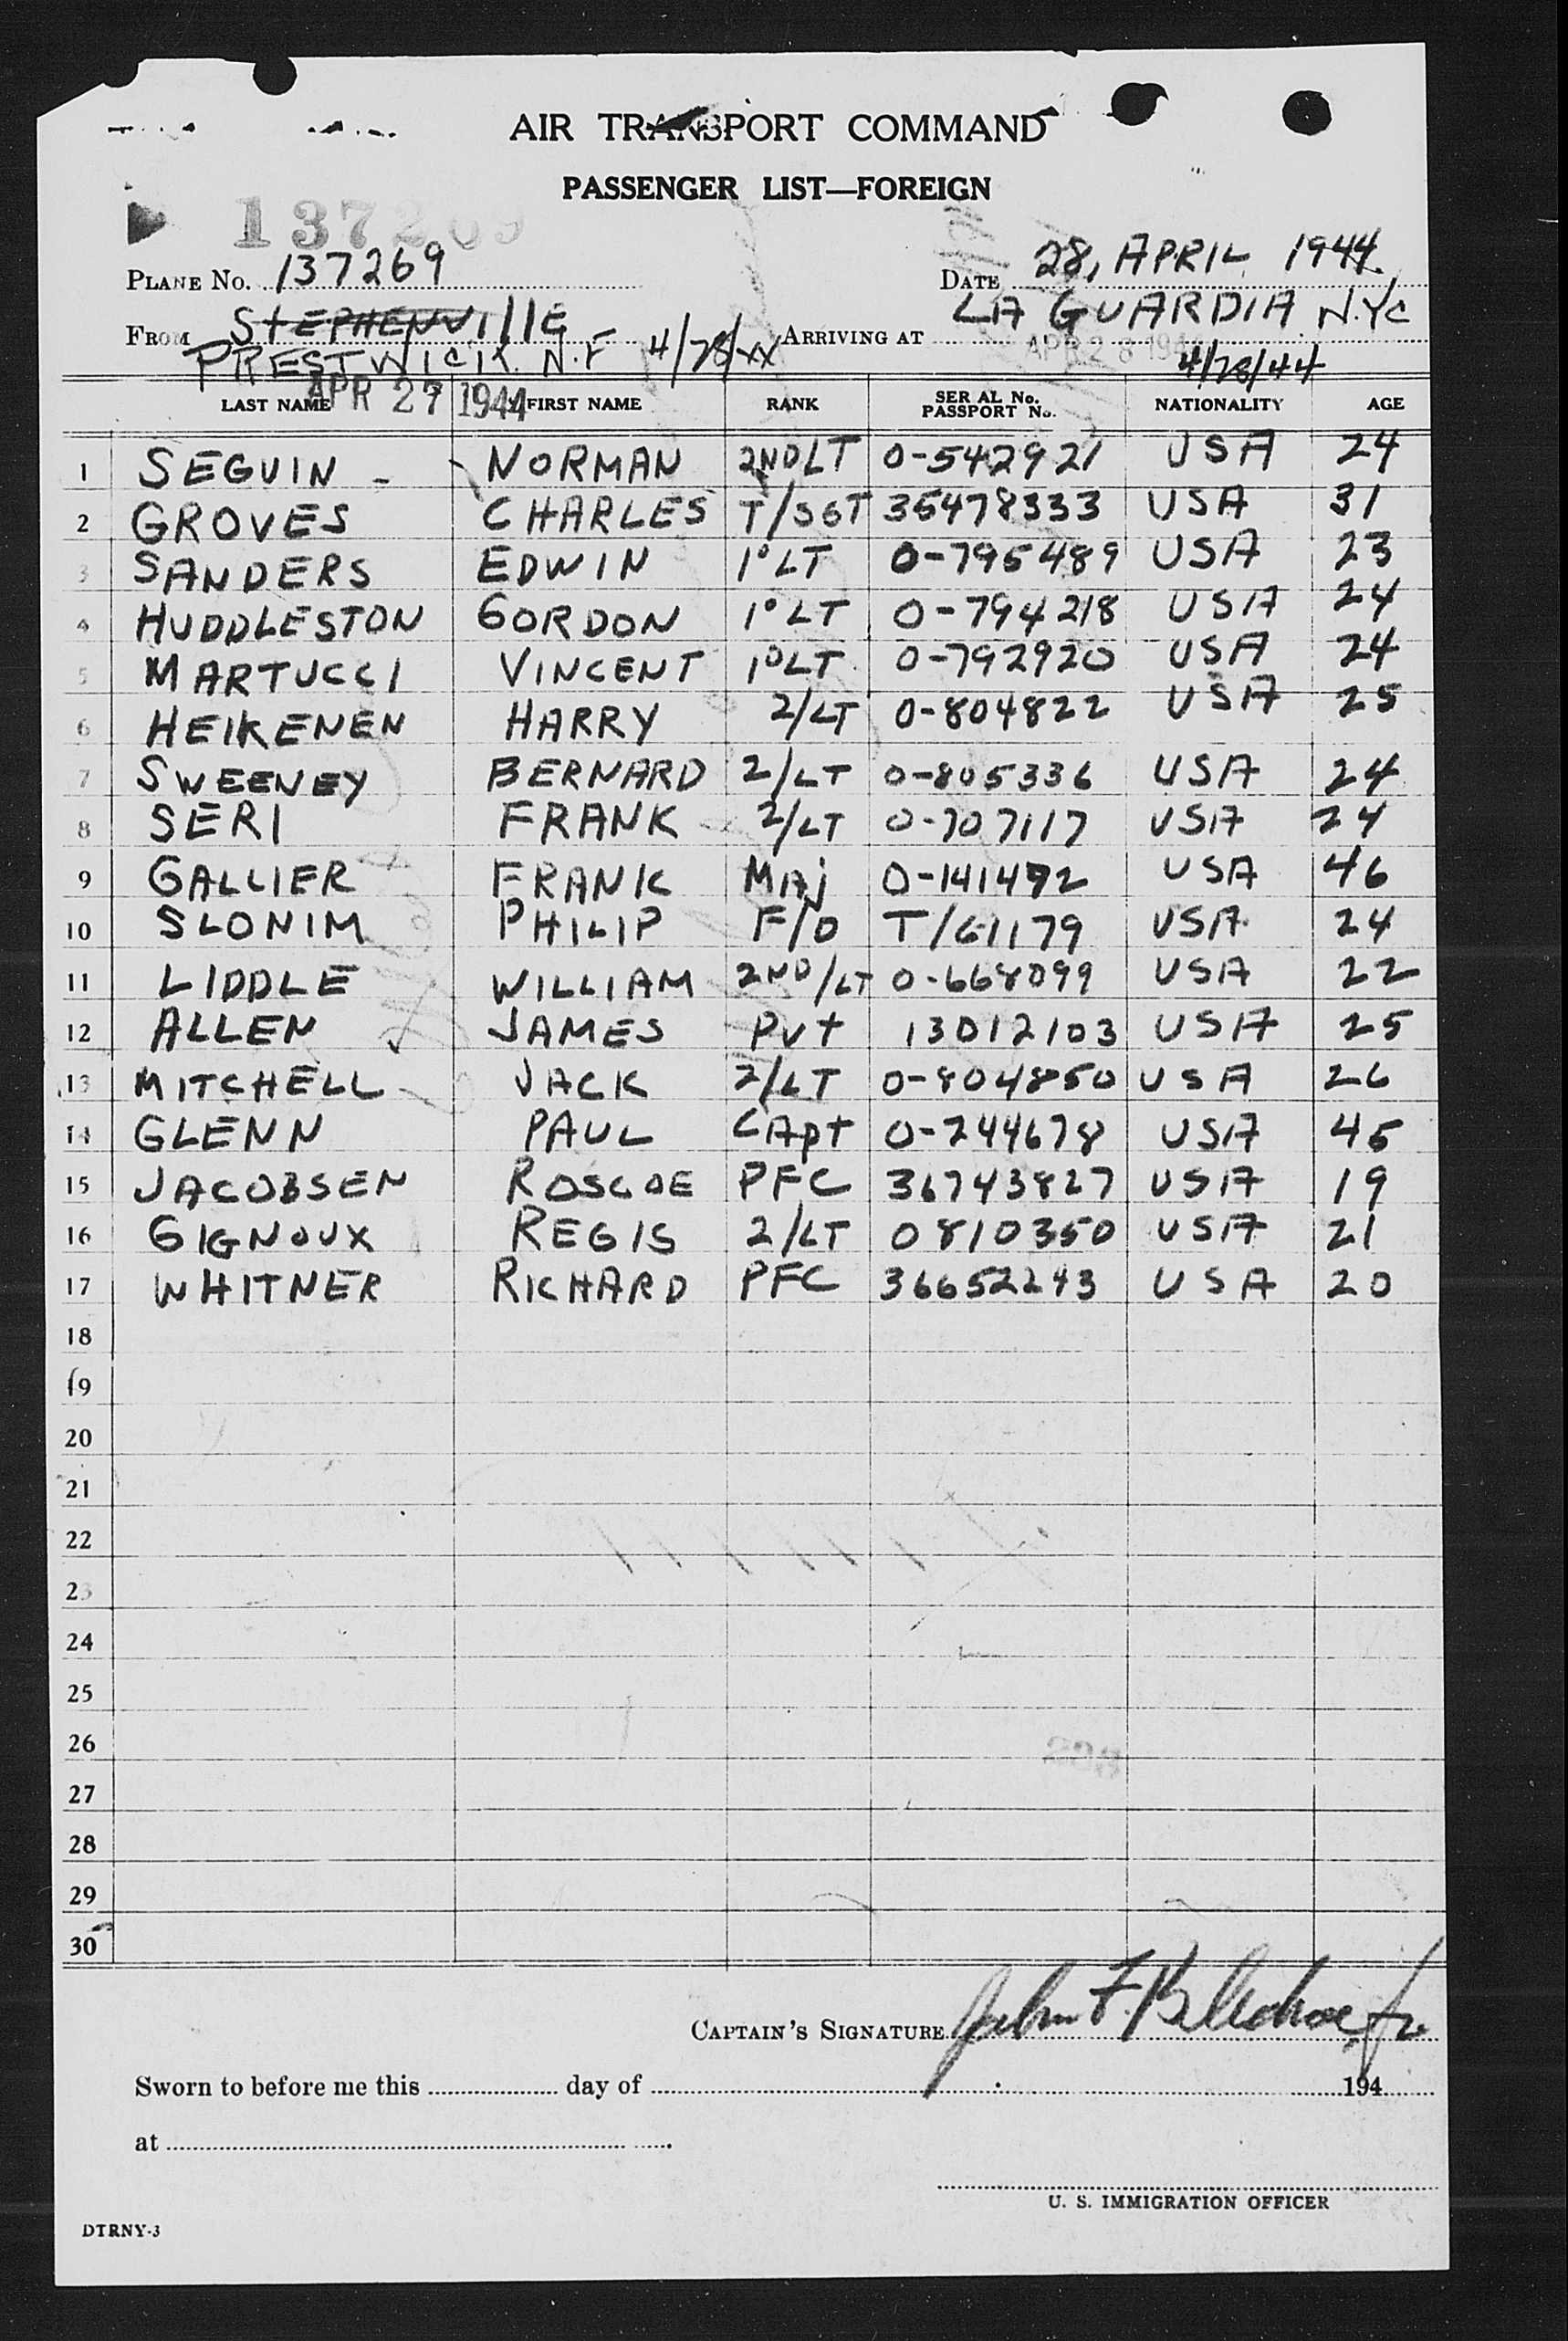 AIR TRANSPORT COMMAND
PASSENGER LIST—FOREIGN
137269
PLANE No. 137269 DATE 28, APRIL 1944
FROM StEPHENVIllE ARRIVING AT LA GUARDIA N.Y.C
PRESTWICK N.F 4/28/44 APR 28 194 4/28/44
APR 27 1944
LAST NAME FIRST NAME RANK SERIAL No. PASSPORT No. NATIONALITY AGE
1 SEGUIN - NORMAN 2ND LT 0-542921 USA 24
2 GROVES CHARLES T/SGT 35478333 USA 31
3 SANDERS EDWIN 1º LT 0-795489 USA 23
4 HUDDLESTON GORDON 1º LT 0-794218 USA 24
5 MARTUCCI VINCENT 1º LT 0-792920 USA 24
6 HEIKENEN HARRY 2/LT 0-804822 USA 25
7 SWEENEY BERNARD 2/LT 0-805336 USA 24
8 SERI FRANK 2/LT 0-707117 USA 24
9 GALLIER FRANK MAj 0-141492 USA 46
10 SLONIM PHILIP F/O T/61179 USA 24
11 LIDDLE WILLIAM 2ND/LT 0-668099 USA 22
12 ALLEN ✓ JAMES Pvt 13012103 USA 25
13 MITCHELL JACK 2/LT 0-804850 USA 26
14 GLENN PAUL CApt 0-244678 USA 45
15 JACOBSEN ROSCOE PFC 36743827 USA 19
16 GIGNOUX REGIS 2/LT 0810350 USA 21
17 WHITNER RICHARD PFC 36652243 USA 20
18
19
20
21
22
23
24
25
26
27
28
29
30
CAPTAIN'S SIGNATURE John F. Jr
Sworn to before me this day of 194
at
U. S. IMMIGRATION OFFICER
DTRNY-3